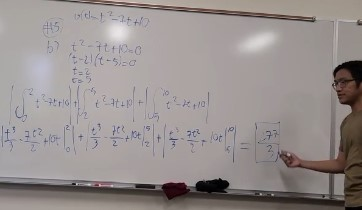 #5 v(t)= t²-7t+10
b) t²-7t+10=0
(t-2)(t-5)=0
t=2
t=5
|∫₀² t²-7t+10| + |∫₂⁵ t²-7t+10| + |∫₅¹⁰ t²-7t+10|
|t³/3 - 7t²/2 + 10t|₀²| + |t³/3 - 7t²/2 + 10t|₂⁵| + |t³/3 - 7t²/2 + 10t|₅¹⁰| =